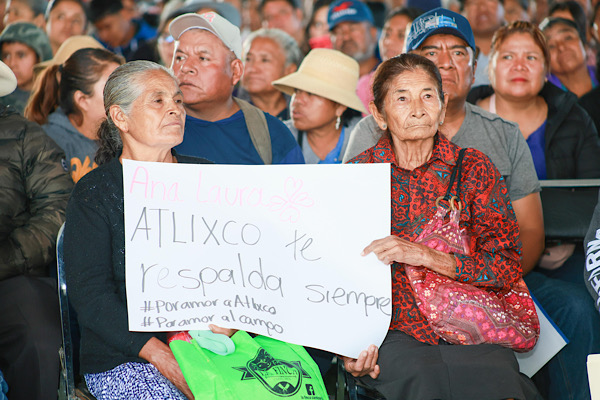 Ana Laura
ATLIXCO te
respalda siempre
#PoramoraAtlixco
#Poramor al campo
FINCA